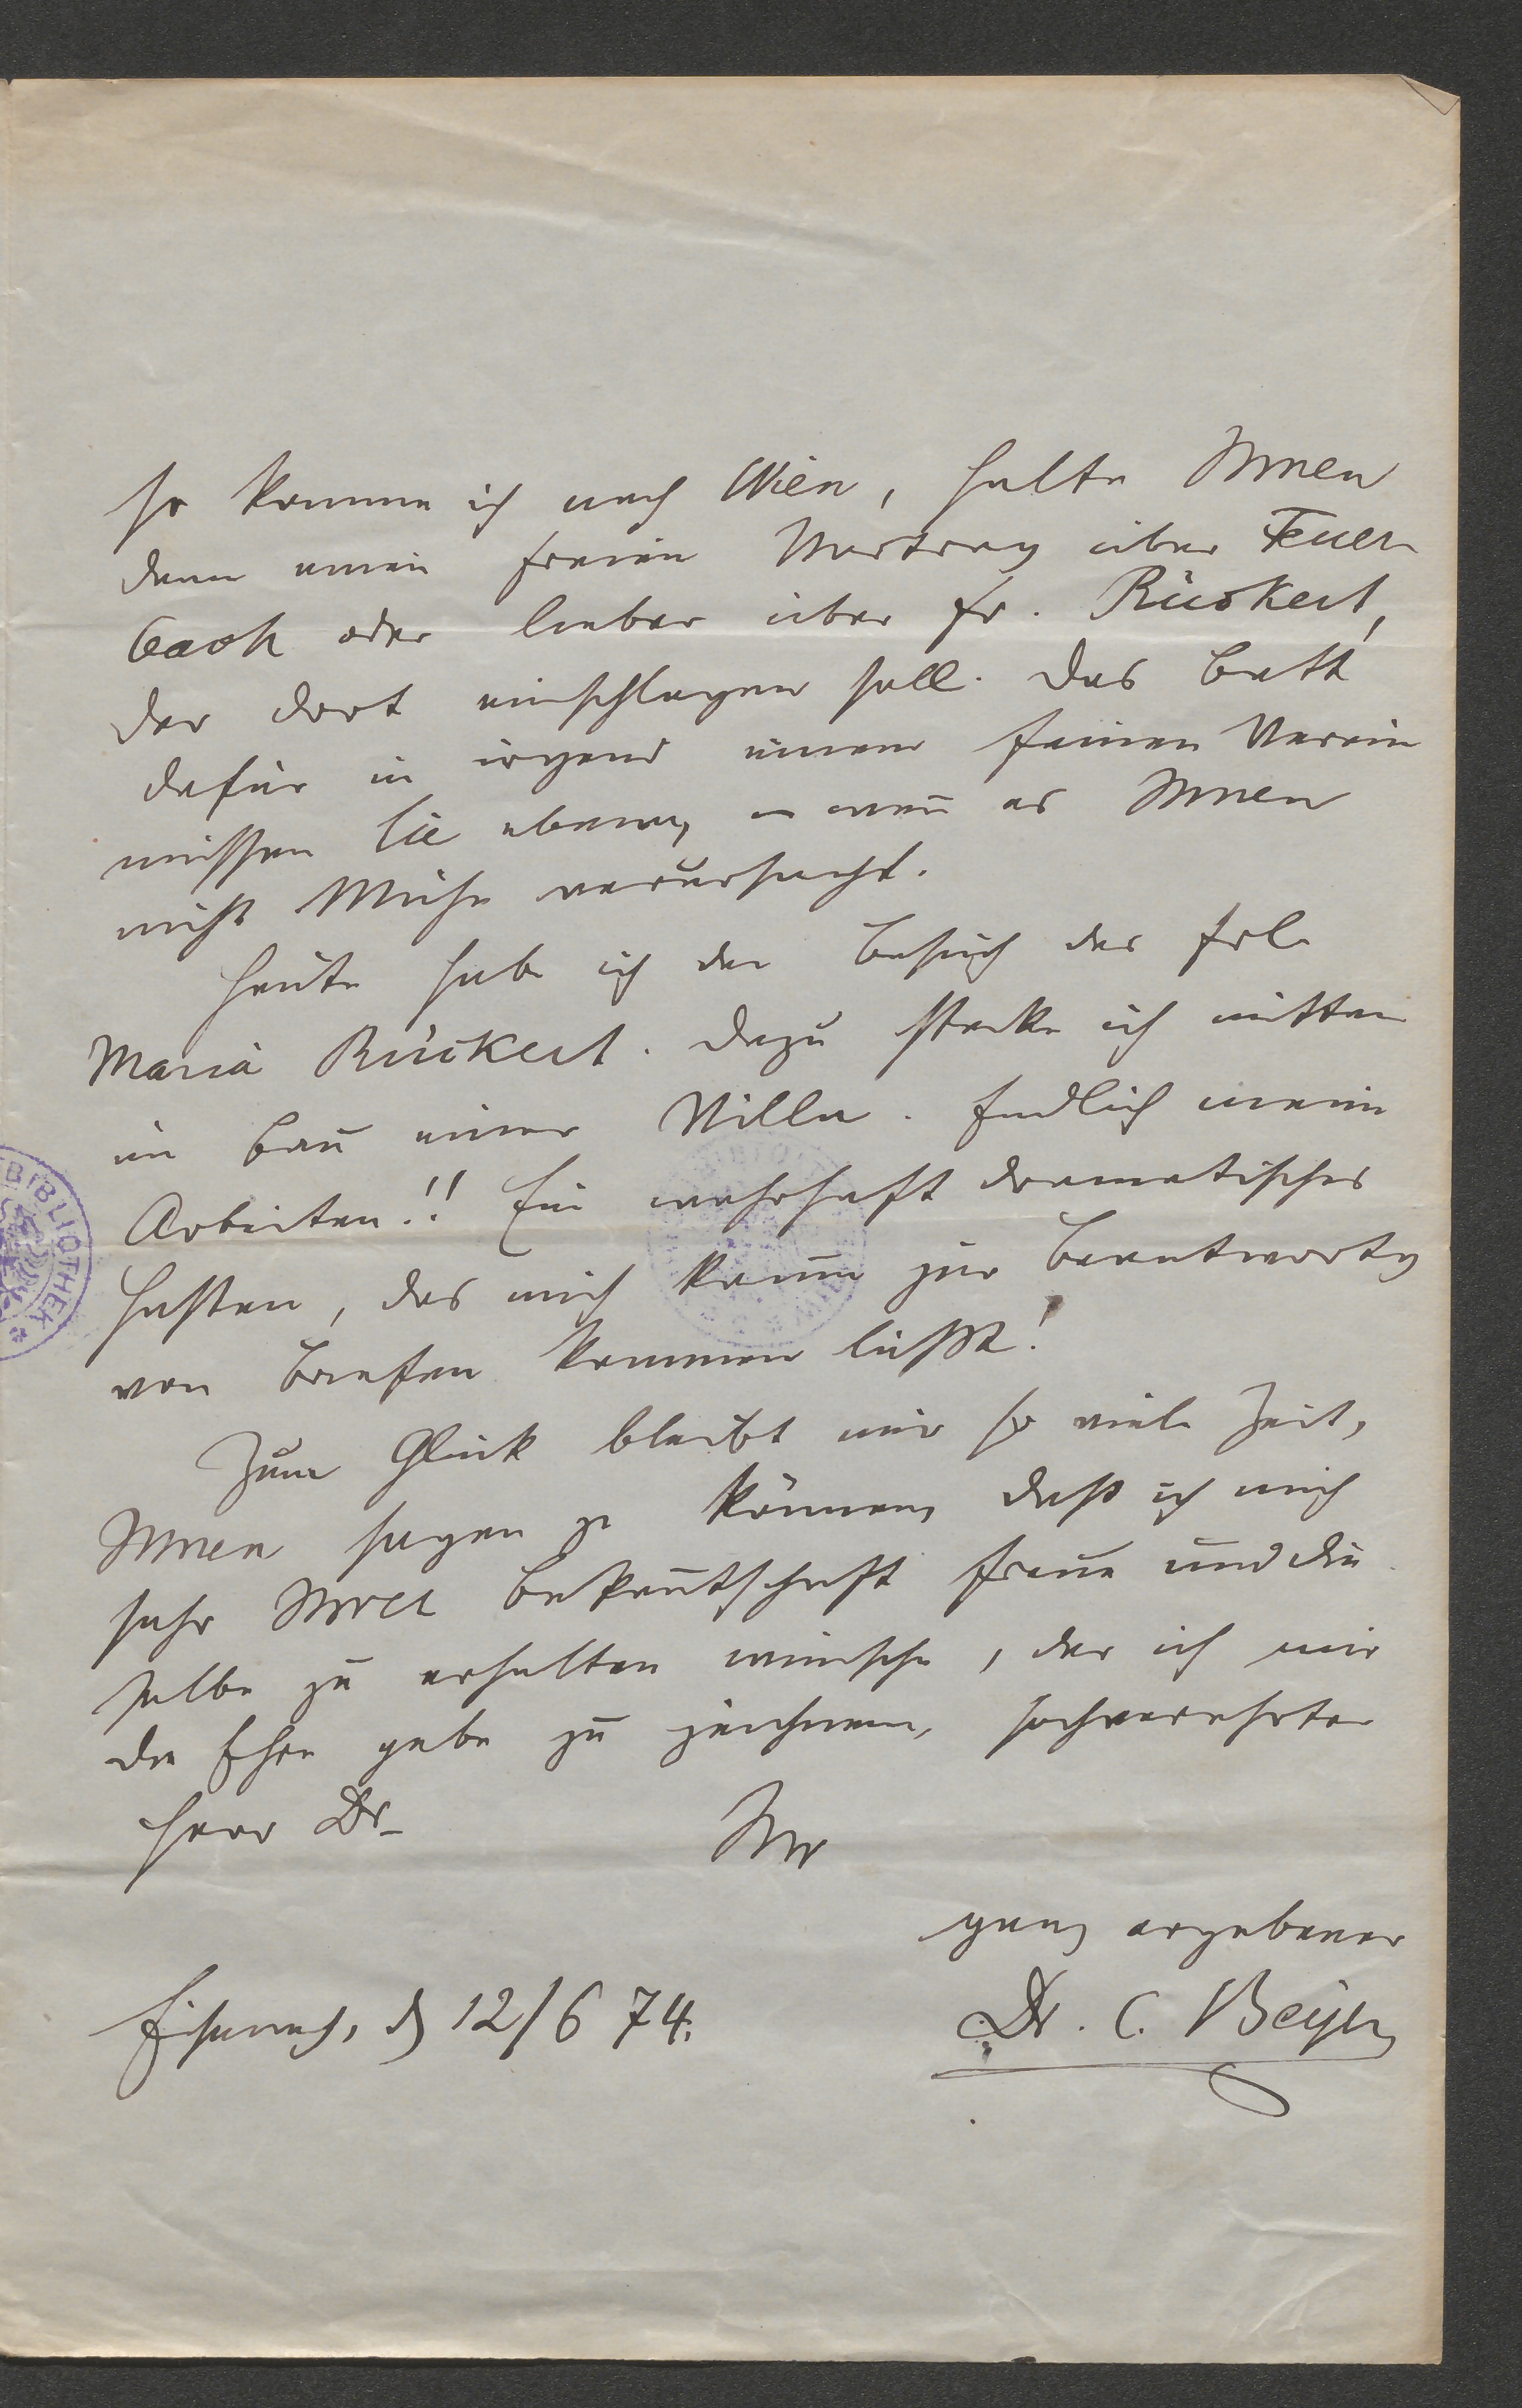 so komme ich nach Wien, halte Ihnen
dann einen freien Vortrag über Feuer-
bach oder lieber über Fr. Rückert,
der dort einschlagen soll. Das Bett
dafür in irgend einem feinen Verein
müssen Sie ebenen, wenn es Ihnen
nicht Mühe verursacht.
Heute habe ich den Besuch der Frl.
Maria Rückert. Dazu stecke ich mitten
im Bau einer Villa. Endlich meine
Arbeiten!! Ein wahrhaft dramatisches
Hasten, das mich kaum zur Beantwortg
von Briefen kommen läßt!
Zum Glück bleibt mir so viele Zeit,
Ihnen sagen zu können, daß ich mich
sehr Ihrer Bekanntschaft freue und die-
selbe zu erhalten wünsche, der ich mir
die Ehre gebe zu zeichnen, hochverehrter
Herr Dr.
Ihr
ganz ergebener
Eisenach, d 12/6 74.
Dr. C. Beyer
BIBLIOTHEK